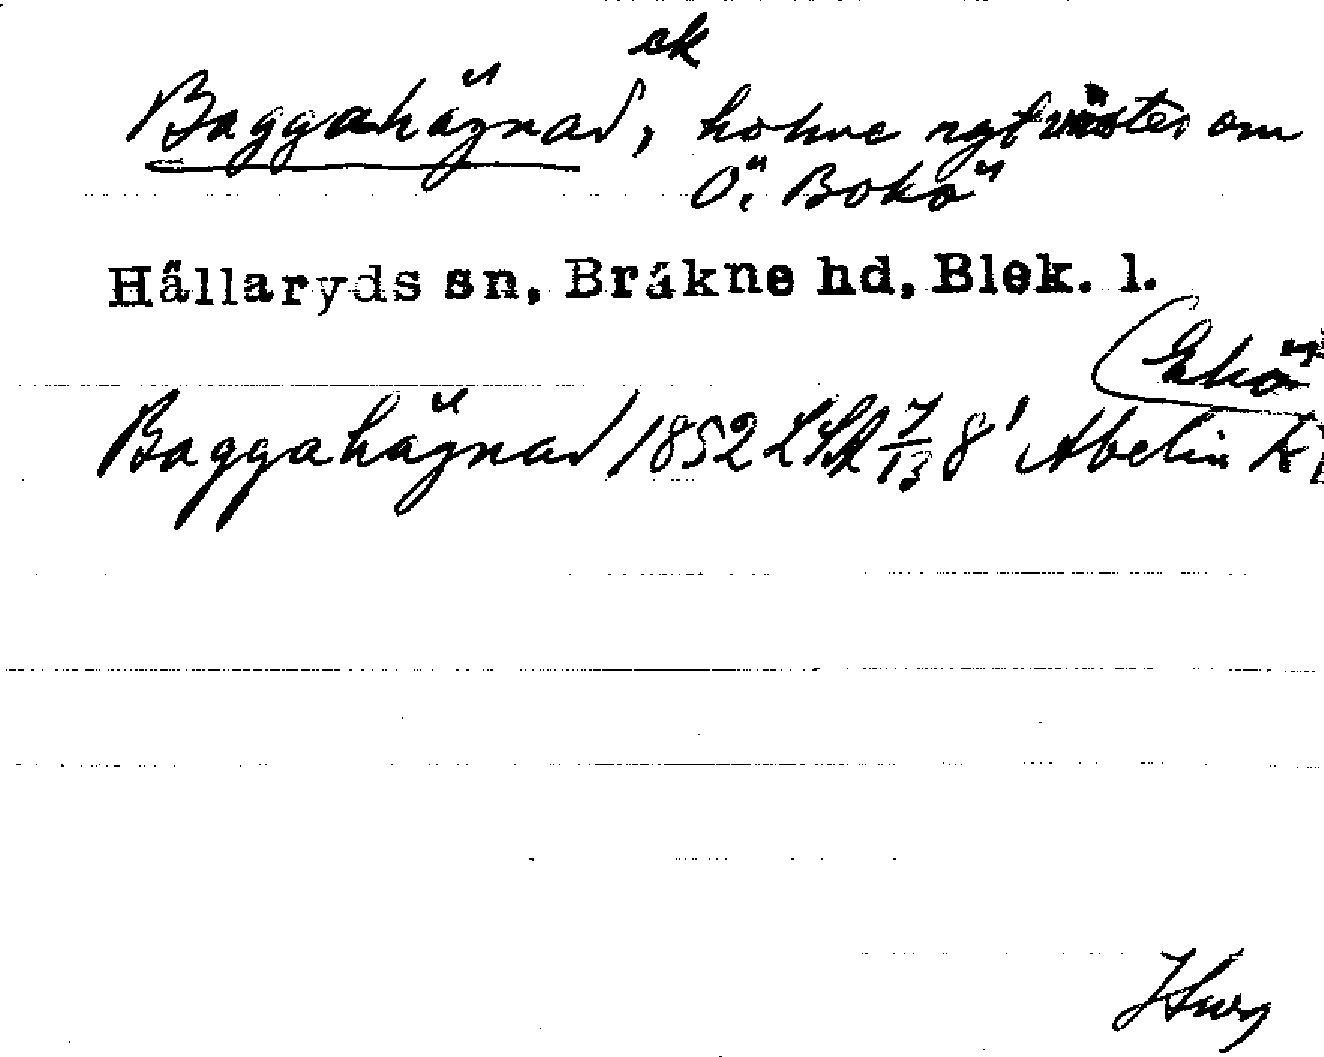 ek
Baggahägnad, holme ngt väster om
Ö. Bokö
Hällaryds sn, Bräkne hd, Blek. l.
(Ekö
Baggahägnad 1852 LSA 7/13 8¹ Abelin K